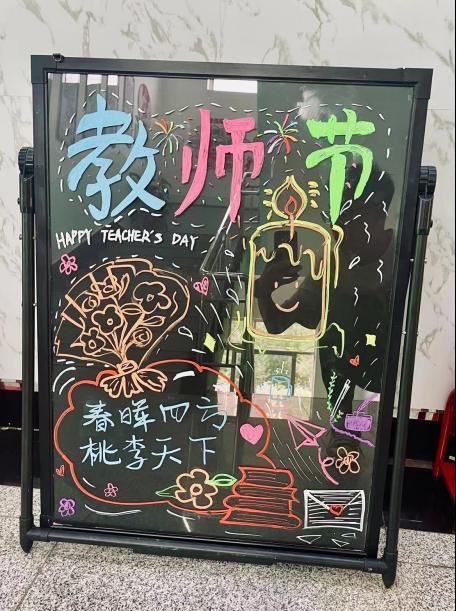 教师节
HAPPY TEACHER'S DAY
春晖四方
桃李天下